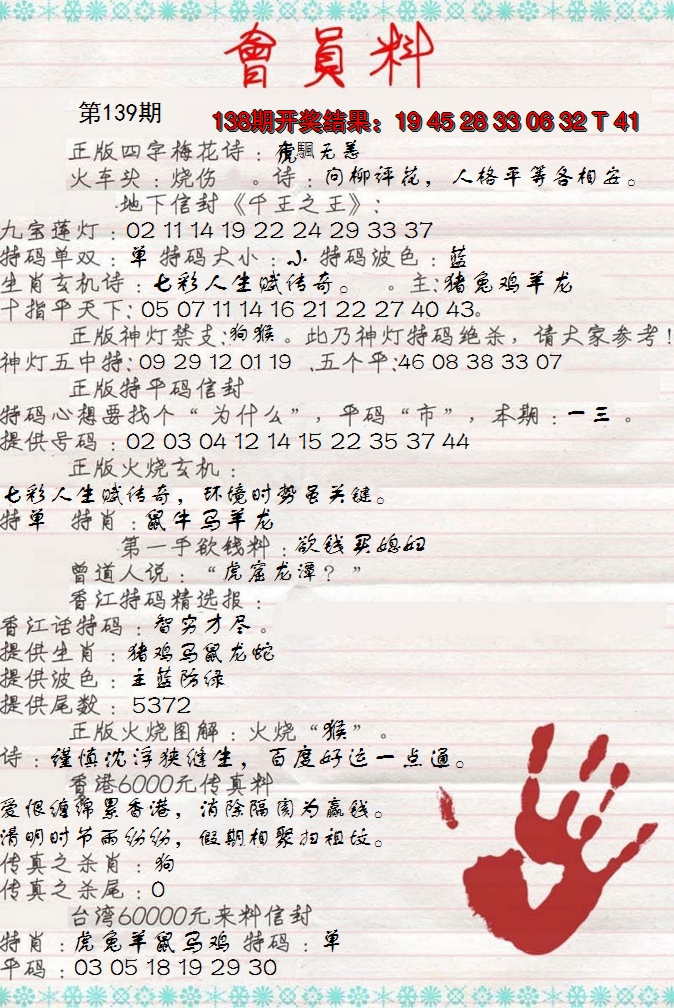 會員料
第139期
138期开奖结果：19 45 28 33 06 32 T 41
正版四字梅花诗：无恙
火车头：烧伤 。诗：问柳评花，人格平等各相安。
地下信封《千王之王》：
九宝莲灯：02 11 14 19 22 24 29 33 37
特码单双：单 特码大小：小 特码波色：蓝
生肖玄机诗：七彩人生赋传奇。 。主:猪兔鸡羊龙
十指平天下：05 07 11 14 16 21 22 27 40 43。
正版神灯禁支:狗猴。此乃神灯特码绝杀，请大家参考!
神灯五中特:09 29 12 01 19 、五个平:46 08 38 33 07
正版特平码信封
特码心想要找个“为什么”，平码“市”，本期：一三。
提供号码：02 03 04 12 14 15 22 35 37 44
正版火烧玄机：
七彩人生赋传奇，环境时势虽关键。
特单 特肖：鼠牛马羊龙
第一手欲钱料：欲钱买媳妇
曾道人说：“虎窟龙潭？”
香江特码精选报：
香江话特码：智穷才尽。
提供生肖：猪鸡马鼠龙蛇
提供波色：主蓝防绿
提供尾数：5372
正版火烧图解：火烧“猴”。
诗：谨慎沈浮狭缝生，百度好运一点通。
香港6000元传真料
爱恨缠绵累香港，消除隔阂为赢钱。
清明时节雨纷纷，假期相聚扫祖坟。
传真之杀肖：狗
传真之杀尾：0
台湾60000元来料信封
特肖：虎兔羊鼠马鸡 特码：单
平码：03 05 18 19 29 30